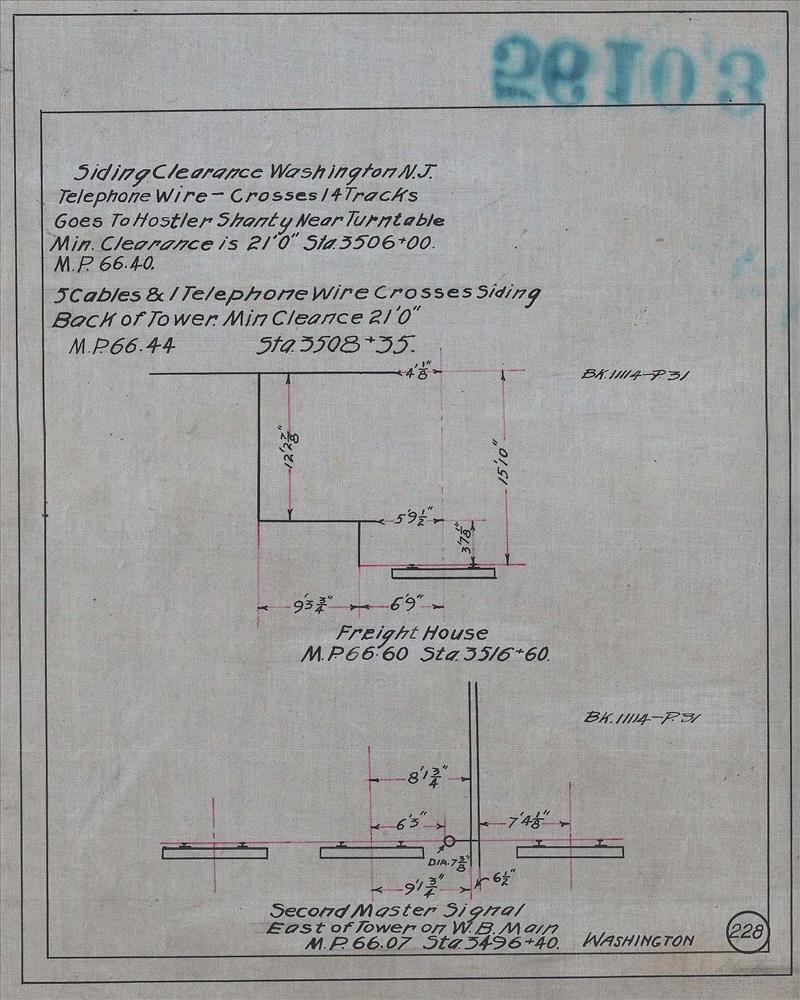 56103
Siding Clearance Washington N.J.
Telephone Wire – Crosses 14 Tracks
Goes To Hostler Shanty Near Turntable
Min. Clearance is 21'0" Sta. 3506+00.
M.P. 66.40.
5 Cables & 1 Telephone Wire Crosses Siding
Back of Tower. Min Cleance 21'0"
M.P. 66.44 Sta. 3508+35.
4' 1/8"
BK. 11114–P.31
12'2 7/8"
15'10"
5'9 1/2"
3'7 1/8"
9'3 3/4" 6'9"
Freight House
M.P. 66.60 Sta. 3516+60.
BK. 11114–P.31
8'1 3/4"
6'3" 7'4 1/8"
DIA. 7 3/8"
9'1 3/4" 6 1/2"
Second Master Signal
East of Tower on W.B. Main
M.P. 66.07 Sta. 3496+40.
WASHINGTON
228